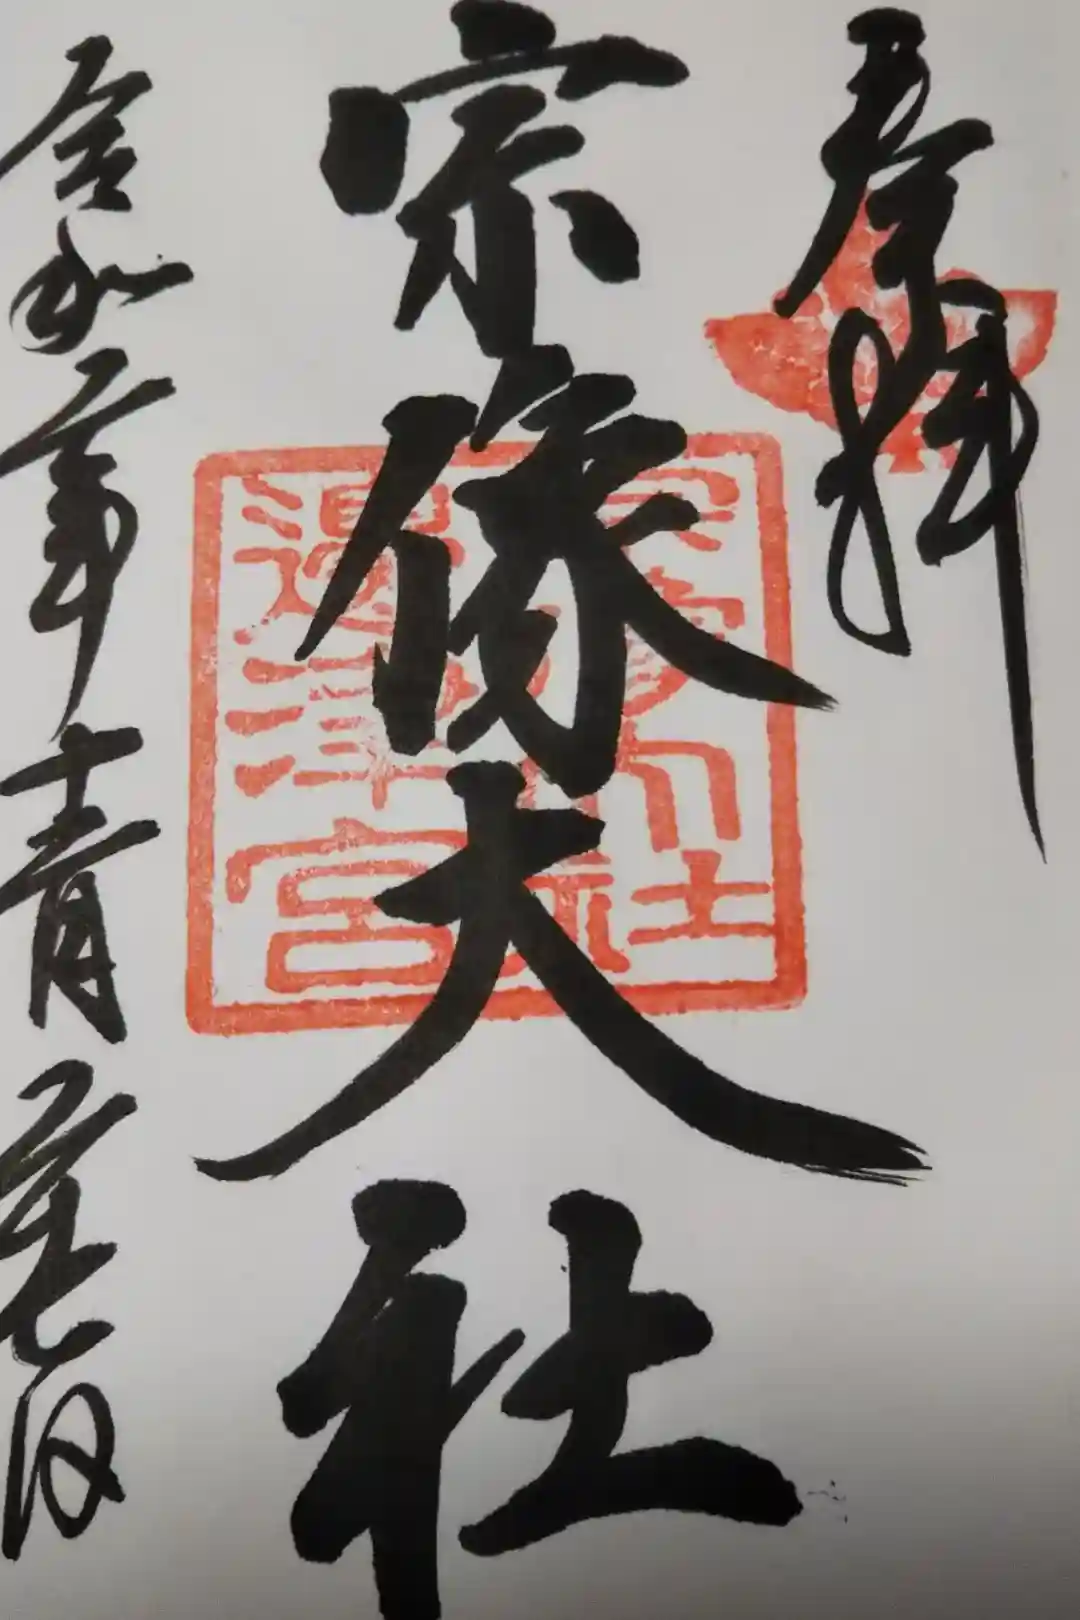 奉拝
宗像大社
宗像大社
邊津宮
令和二年
月二十七日